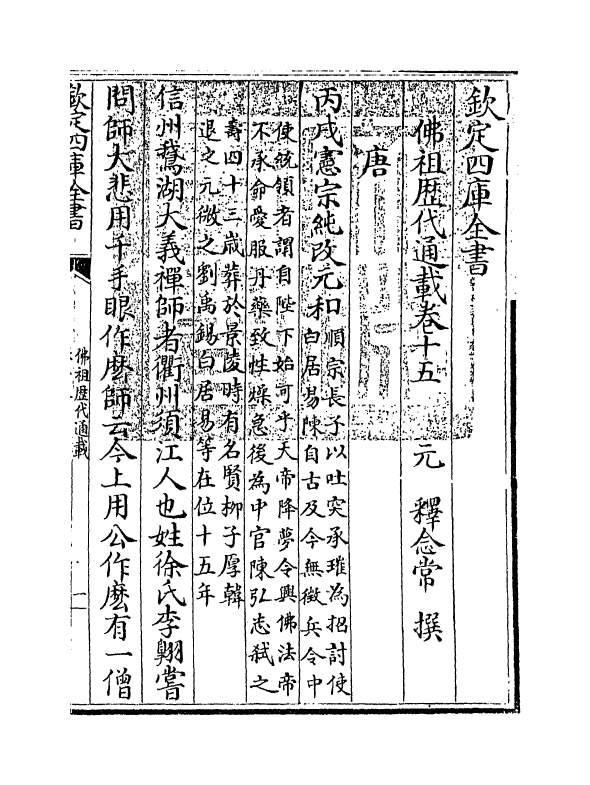 欽定四庫全書
佛祖歷代通載卷十五　元　釋念常　撰
唐
丙戌憲宗純改元和
順宗長子以吐突承璀為招討使
白居易陳自古及今無徵兵令中
使統領者謂自陛下始可乎天帝降夢令興佛法帝
不承命愛服丹藥致性燥急後為中官陳弘志弒之
壽四十三歲葬於景陵時有名賢柳子厚韓
退之元微之劉禹錫白居易等在位十五年
信州鵝湖大義禪師者衢州須江人也姓徐氏李翱嘗
問師大悲用千手眼作麽師云今上用公作麽有一僧
欽定四庫全書
佛祖歷代通載